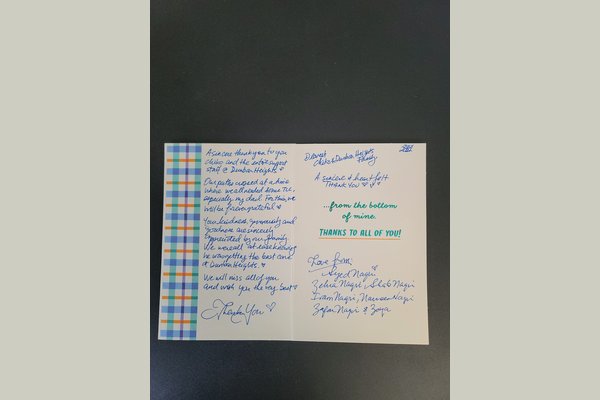 A sincere thank you to you
Chiko and the entire support
staff @ Dunbar Heights
Our paths crossed at a time
where we all needed some TLC,
especially, my dad. For this, we
will be forever grateful
Your kindness, generosity and
goodness are sincerely
appreciated by our family.
We were all at ease knowing
he was getting the best care
@ Dunbar Heights.
We will miss all of you
and wish you the very best
Thank You
Dearest
Chiko & Dunbar Heights
Family
A sincere & heartfelt
THANK YOU
...from the bottom
of mine.
THANKS TO ALL OF YOU!
Love from:
Syed Naqvi
Zehra Naqvi, Sheb Naqvi
Iram Naqvi, Naureen Naqvi
Zafar Naqvi & Zoya